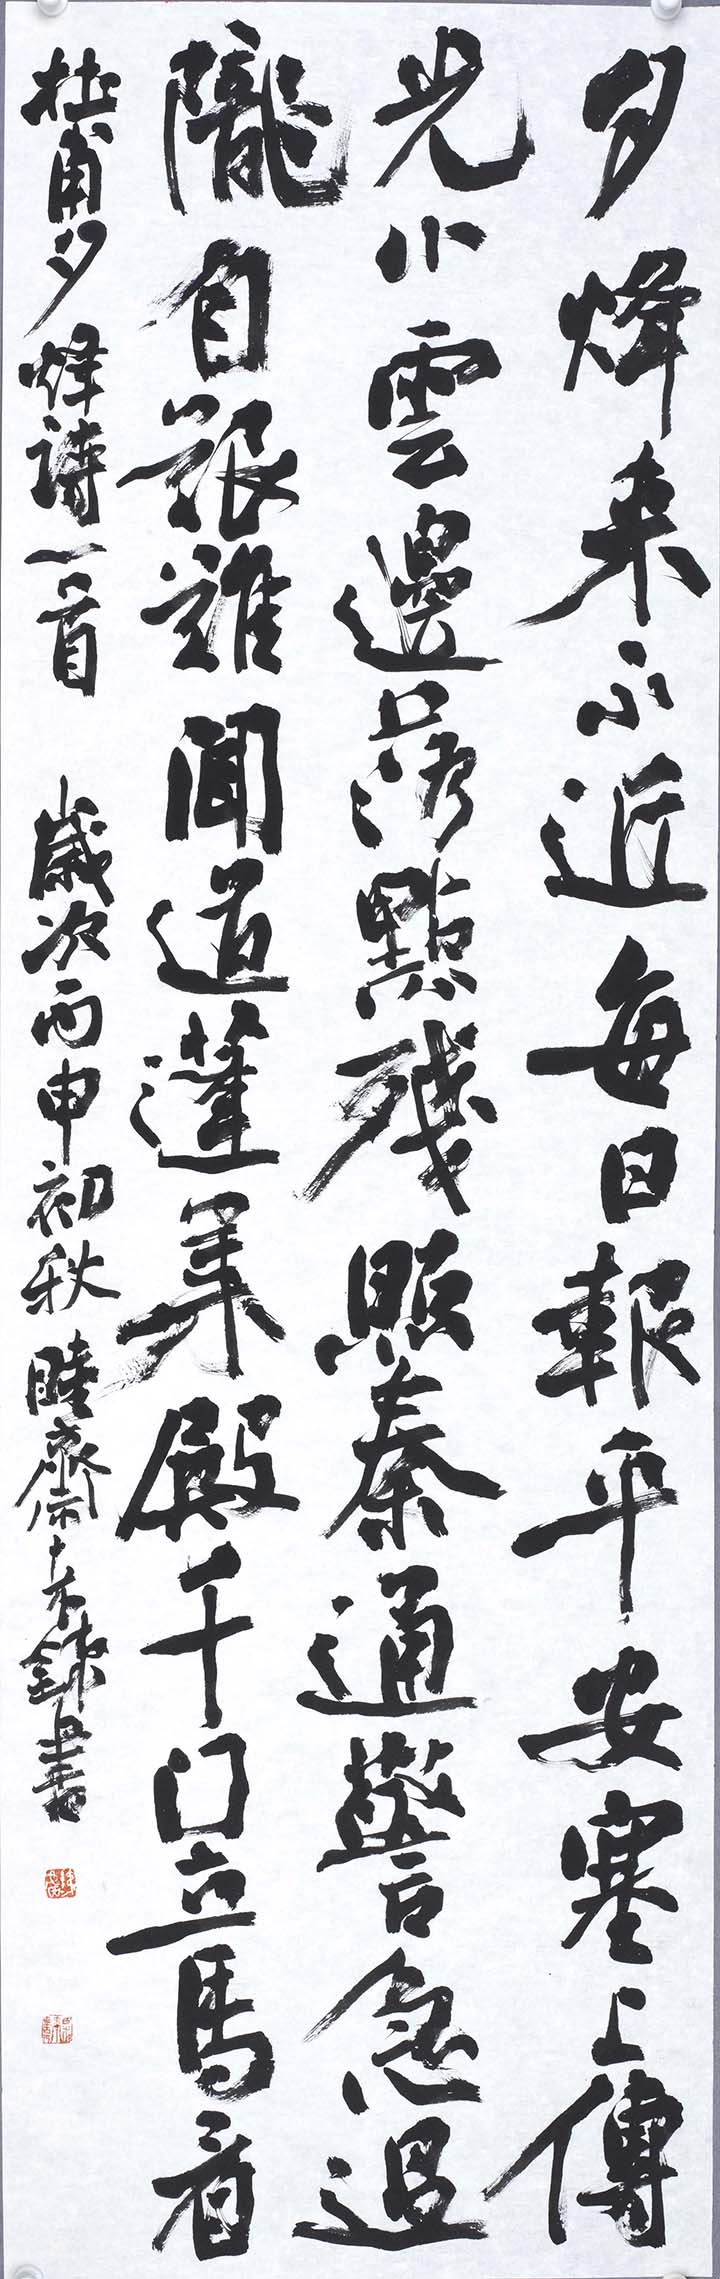 夕烽来不近每日報平安塞上傳
光小雲邊落點殘照秦通警急過
隴自艱難聞道蓬莱殿千门立馬看
杜甫夕烽詩一首 歲次丙申初秋 睦齋 書